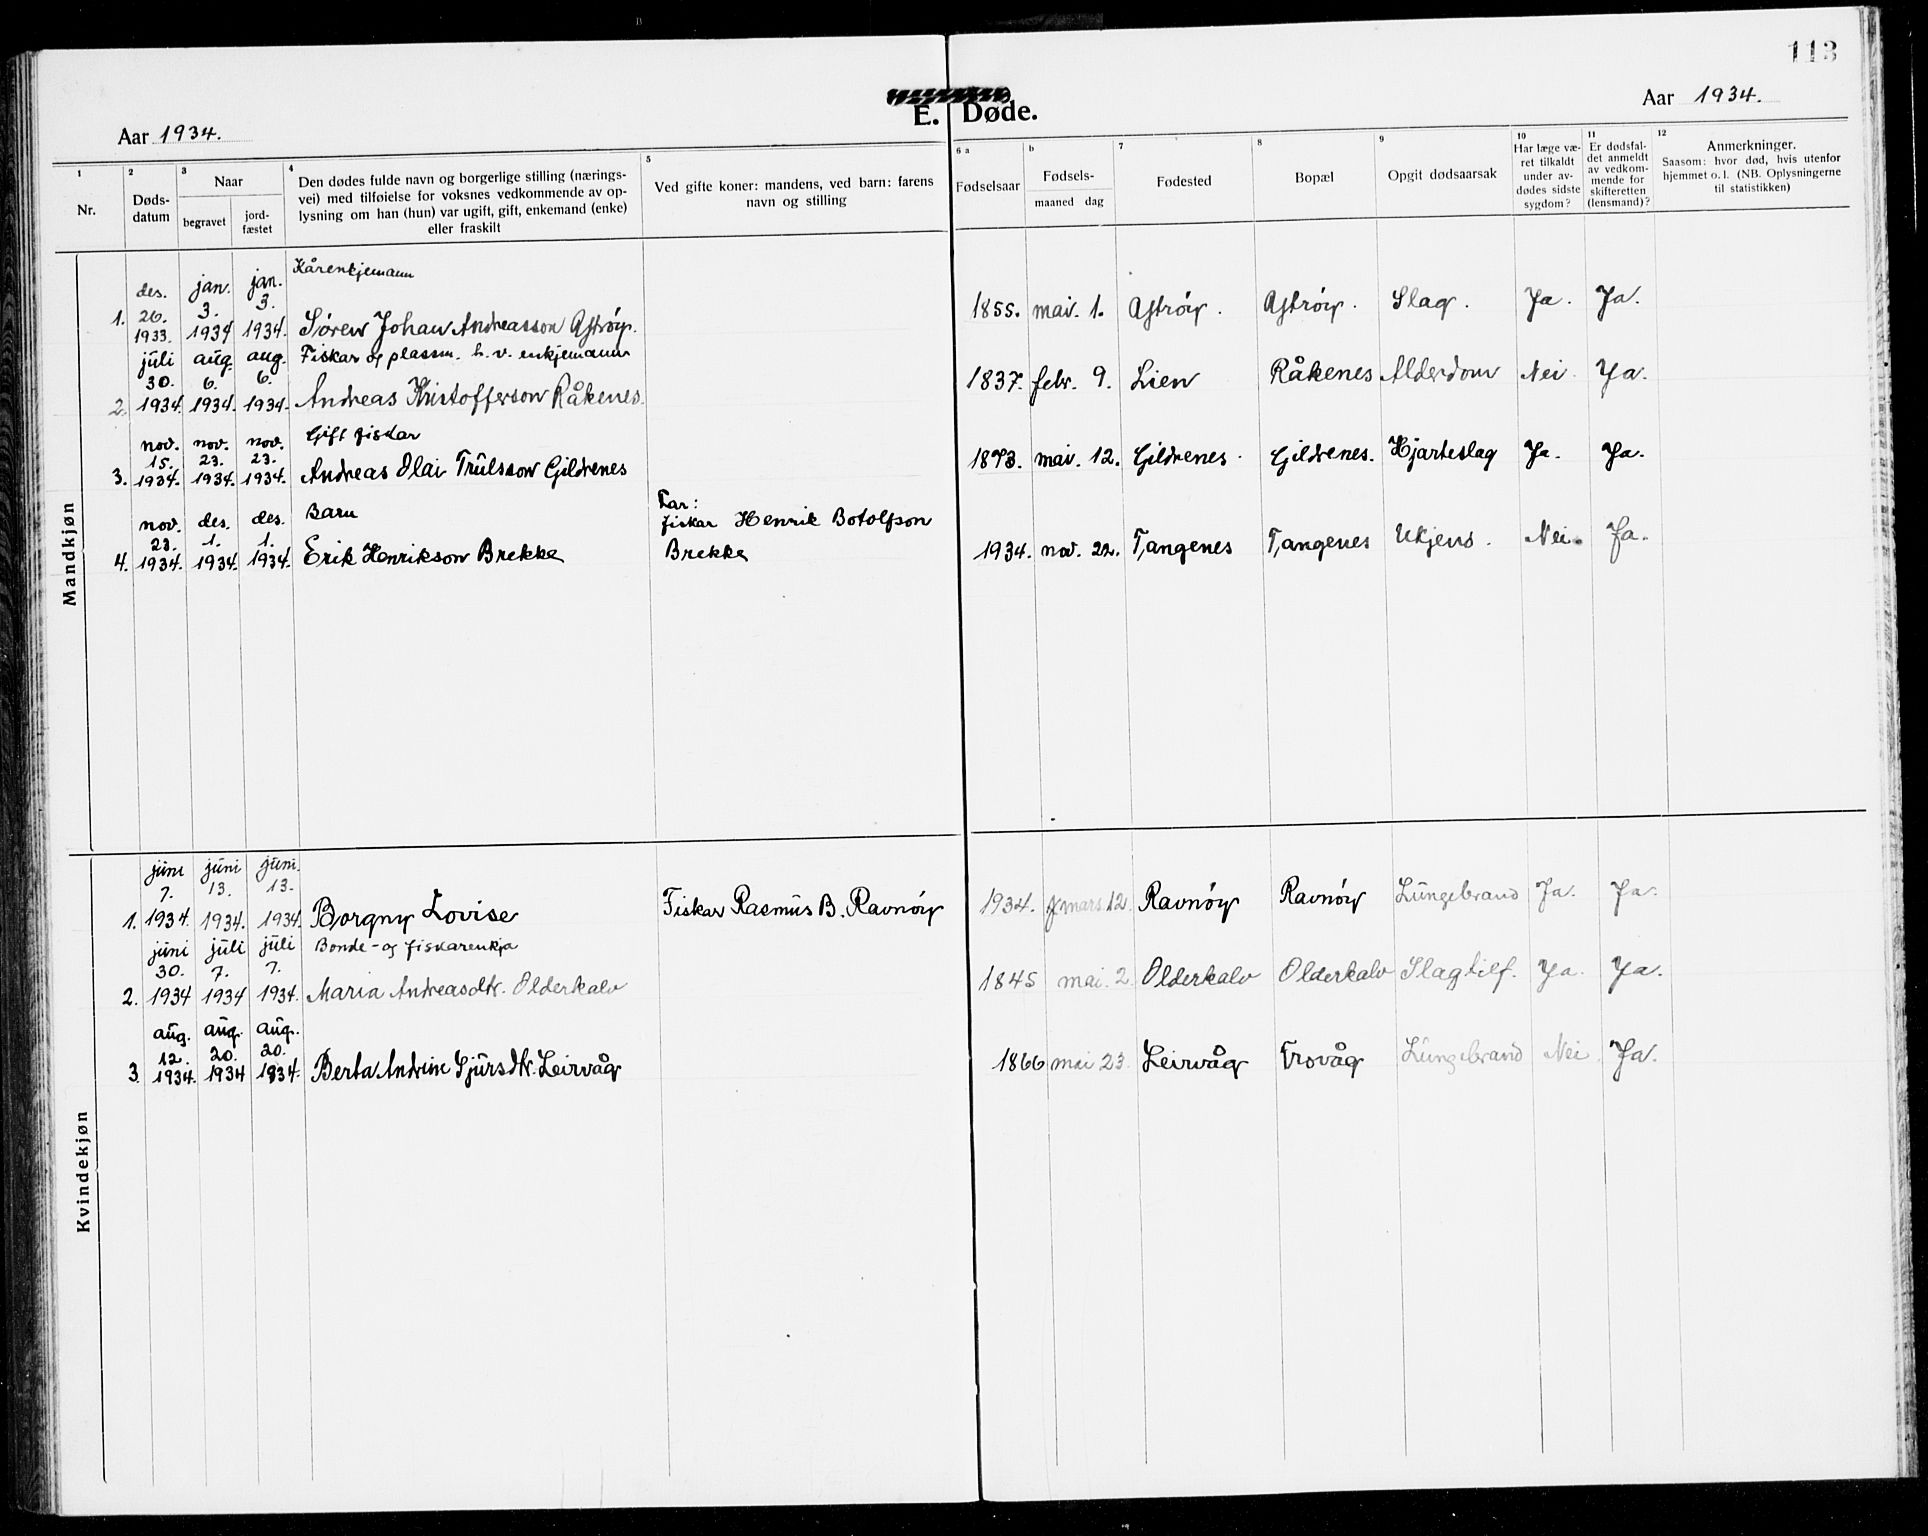 113
E. Døde.
Aar 1934.
Aar 1934.
1
2
3
4
5
6 a
b
7
8
9
10
11
12
Nr.
Døds-
datum
Naar
begravet
jord-
fæstet
Den dødes fulde navn og borgerlige stilling (nærings-
vei) med tilføielse for voksnes vedkommende av op-
lysning om han (hun) var ugift, gift, enkemand (enke)
eller fraskilt
Ved gifte koner: mandens, ved barn: farens
navn og stilling
Fødselsaar
Fødsels-
maaned dag
Fødested
Bopæl
Opgit dødsaarsak
Har læge væ-
ret tilkaldt
under av-
dødes sidste
sygdom?
Er dødsfal-
det anmeldt
av vedkom-
mende for
skifteretten
(lensmand)?
Anmerkninger.
Saasom: hvor død, hvis utenfor
hjemmet o. l. (NB. Oplysningerne
til statistikken)
Mandkjøn
Kårenkjemann
des. jan. jan.
26. 3. 3.
1. 1933. 1934 1934. Søren Johan Andreasson Ystrøy. 1855. mai. 1. Ystrøy. Ystrøy. Slag. Ja. Ja.
juli aug. aug. Fiskar og plassm. h. v. enkjemann
30. 6. 6.
2. 1934. 1934. 1934. Andreas Kristofferson Råkenes. 1837. febr. 9. Lien Råkenes Alderdom Nei. Ja.
nov. nov. nov. Gift fiskar
15. 23. 23.
3. 1934. 1934. 1934. Andreas Olai Trulsson Gildrenes 1873. mai. 12. Gildrenes. Gildrenes. Hjarteslag Ja. Ja.
nov. des. des. Barn Far:
fiskar Henrik Botolfson
23. 1. 1.
4. 1934. 1934. 1934. Erik Henrikson Brekke Brekke 1934. nov. 22. Tangenes Tangenes Ukjend. Nei. Ja.
Kvindekjøn
juni juni juni.
7. 13. 13.
1. 1934. 1934. 1934. Borgny Lovise Fiskar Rasmus B. Ravnøy 1934. mars 12. Ravnøy Ravnøy Lungebrand Ja. Ja.
juni juli juli Bonde- og fiskarenkja
30. 7. 7.
2. 1934 1934 1934. Maria Andreasdtr. Olderkalv 1845 mai. 2 Olderkalv Olderkalv Slagtilf. Ja. Ja.
aug. aug. aug.
12. 20. 20.
3. 1934. 1934 1934. Berta Andrine Sjursdtr. Leirvåg 1866 mai 23. Leirvåg Trovåg Lungebrand Nei Ja.